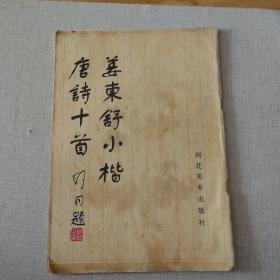 姜東舒小楷
唐詩十首
河北美术出版社